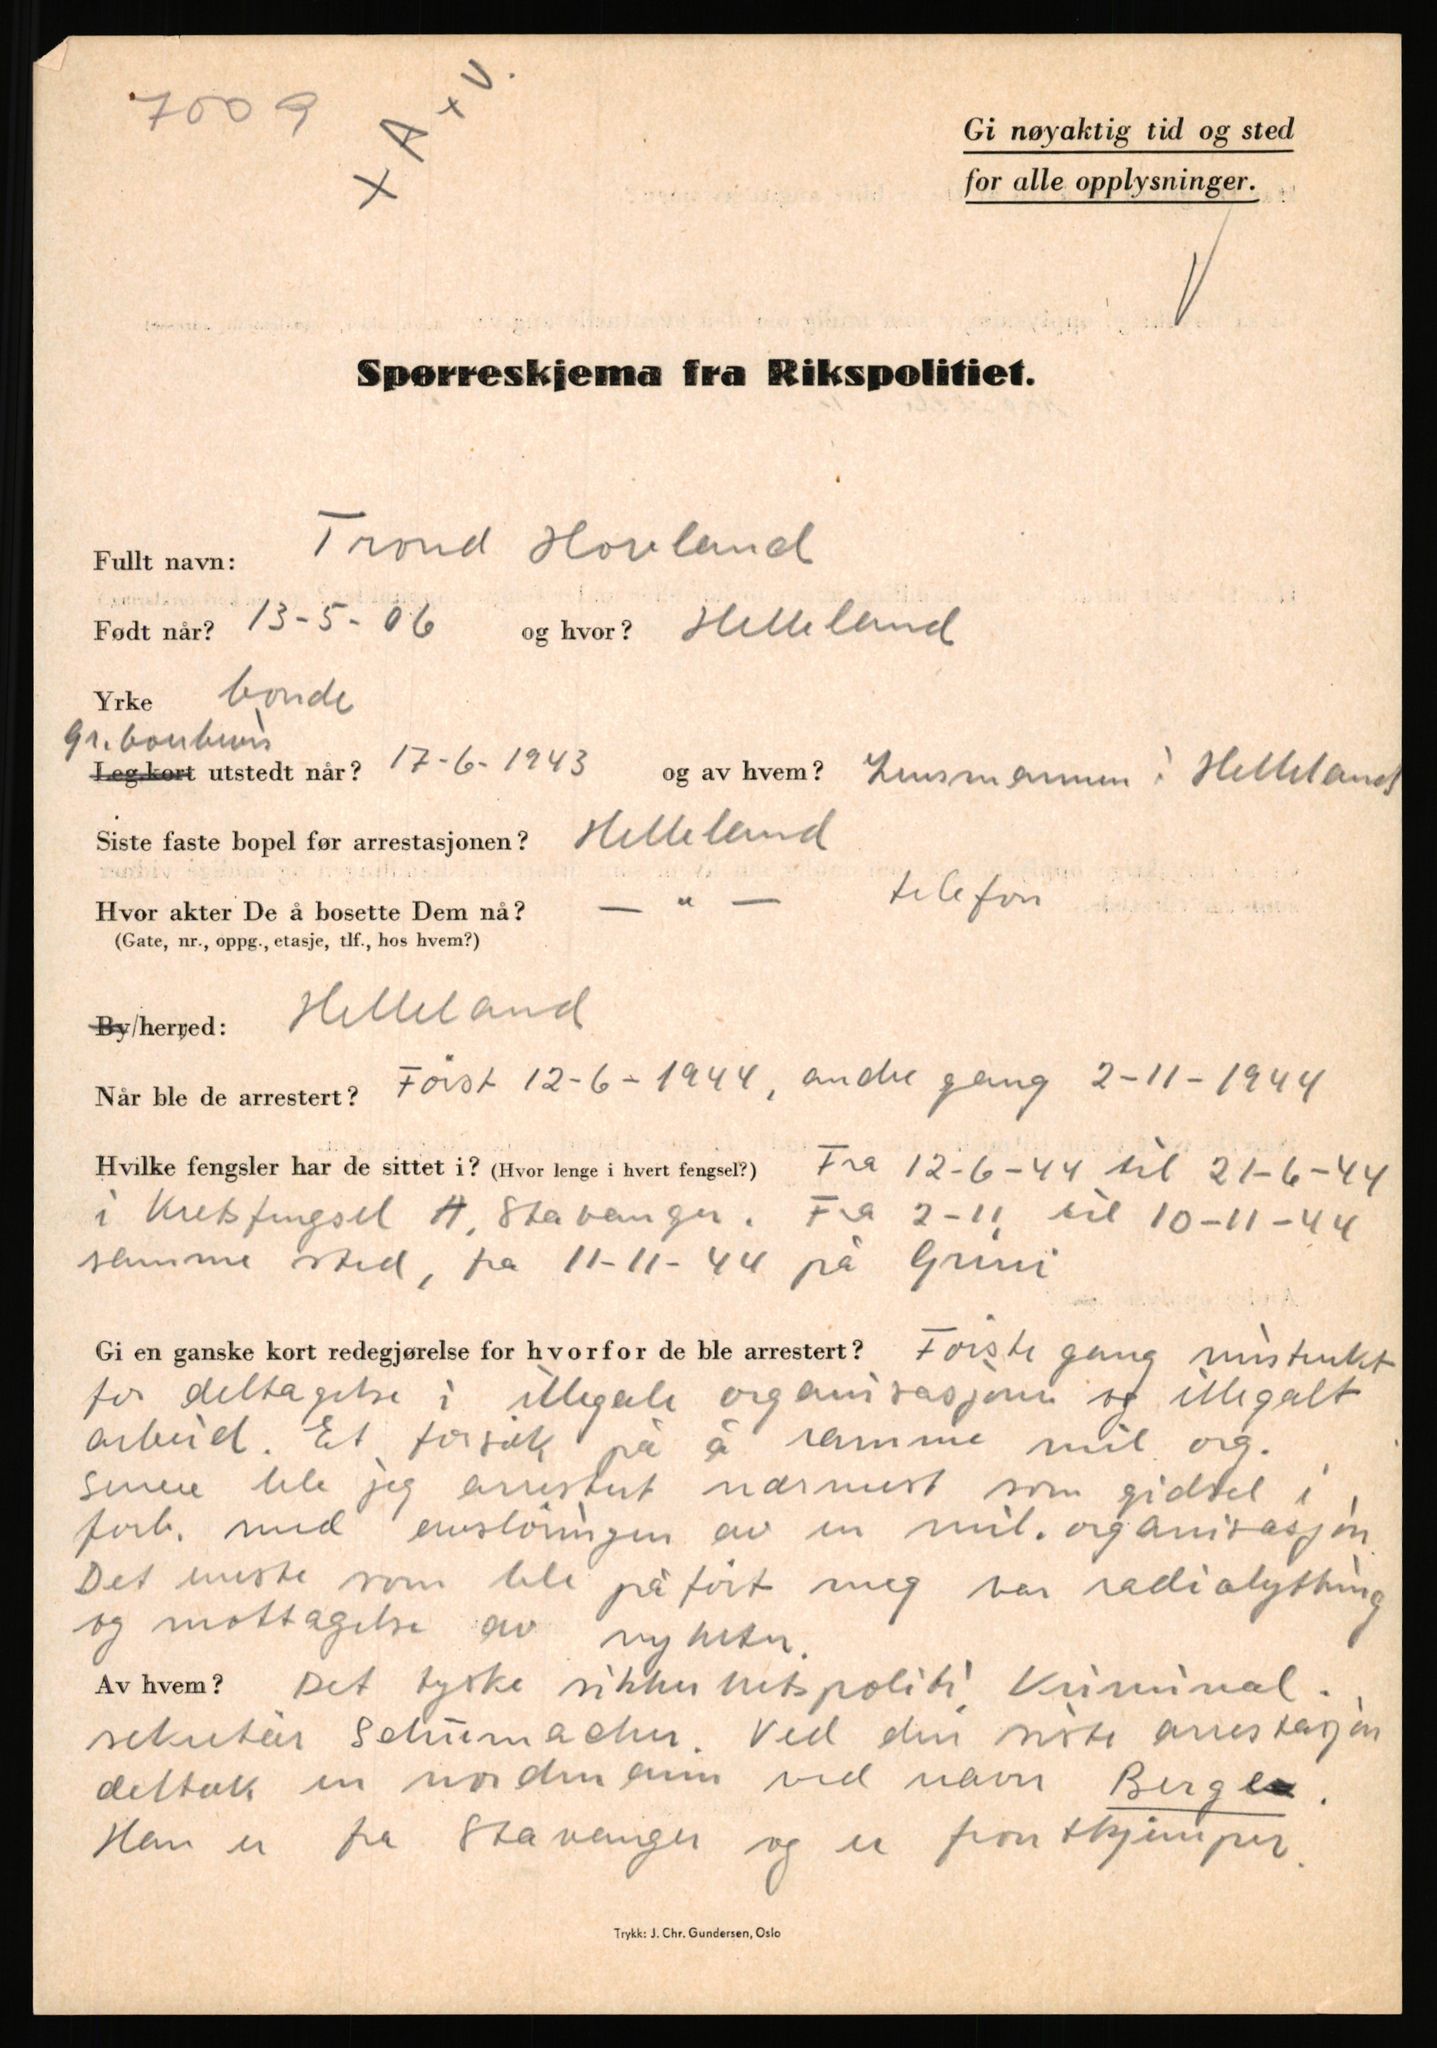 7009
x A x V.
Gi nøyaktig tid og sted
for alle opplysninger.
V
Spørreskjema fra Rikspolitiet.
Fullt navn: Trond Hoveland
Født når? 13-5-06 og hvor? Helleland
Yrke bonde
Gr. boerbevis
Leg.kort utstedt når? 17-6-1943 og av hvem? Lensmannen i Helleland
Siste faste bopel før arrestasjonen? Helleland
Hvor akter De å bosette Dem nå? — " — telefon
(Gate, nr., oppg., etasje, tlf., hos hvem?)
By/herred: Helleland
Når ble de arrestert? Först 12-6-1944, andre gang 2-11-1944
Hvilke fengsler har de sittet i? (Hvor lenge i hvert fengsel?) Fra 12-6-44 til 21-6-44
i Kretsfengsel A, Stavanger. Fra 2-11 til 10-11-44
samme sted, fra 11-11-44 på Grini
Gi en ganske kort redegjørelse for hvorfor de ble arrestert? Förste gang mistenkt
for deltagelse i illegale organisasjoner og illegalt
arbeid. Et forsök på å ramme mil. org.
Senere ble jeg arrestert nærmest som gidsel i
forb. med avslöringen av en mil. organisasjon.
Det eneste som ble påfört meg var radiolytting
og mottagelse av nyheter.
Av hvem? Det tyske sikkerhetspoliti, Kriminal-
sekretær Schumacher. Ved den siste arrestasjon
deltok en nordmann ved navn Berge.
Han er fra Stavanger og er frontkjemper.
Trykk: J. Chr. Gundersen, Oslo